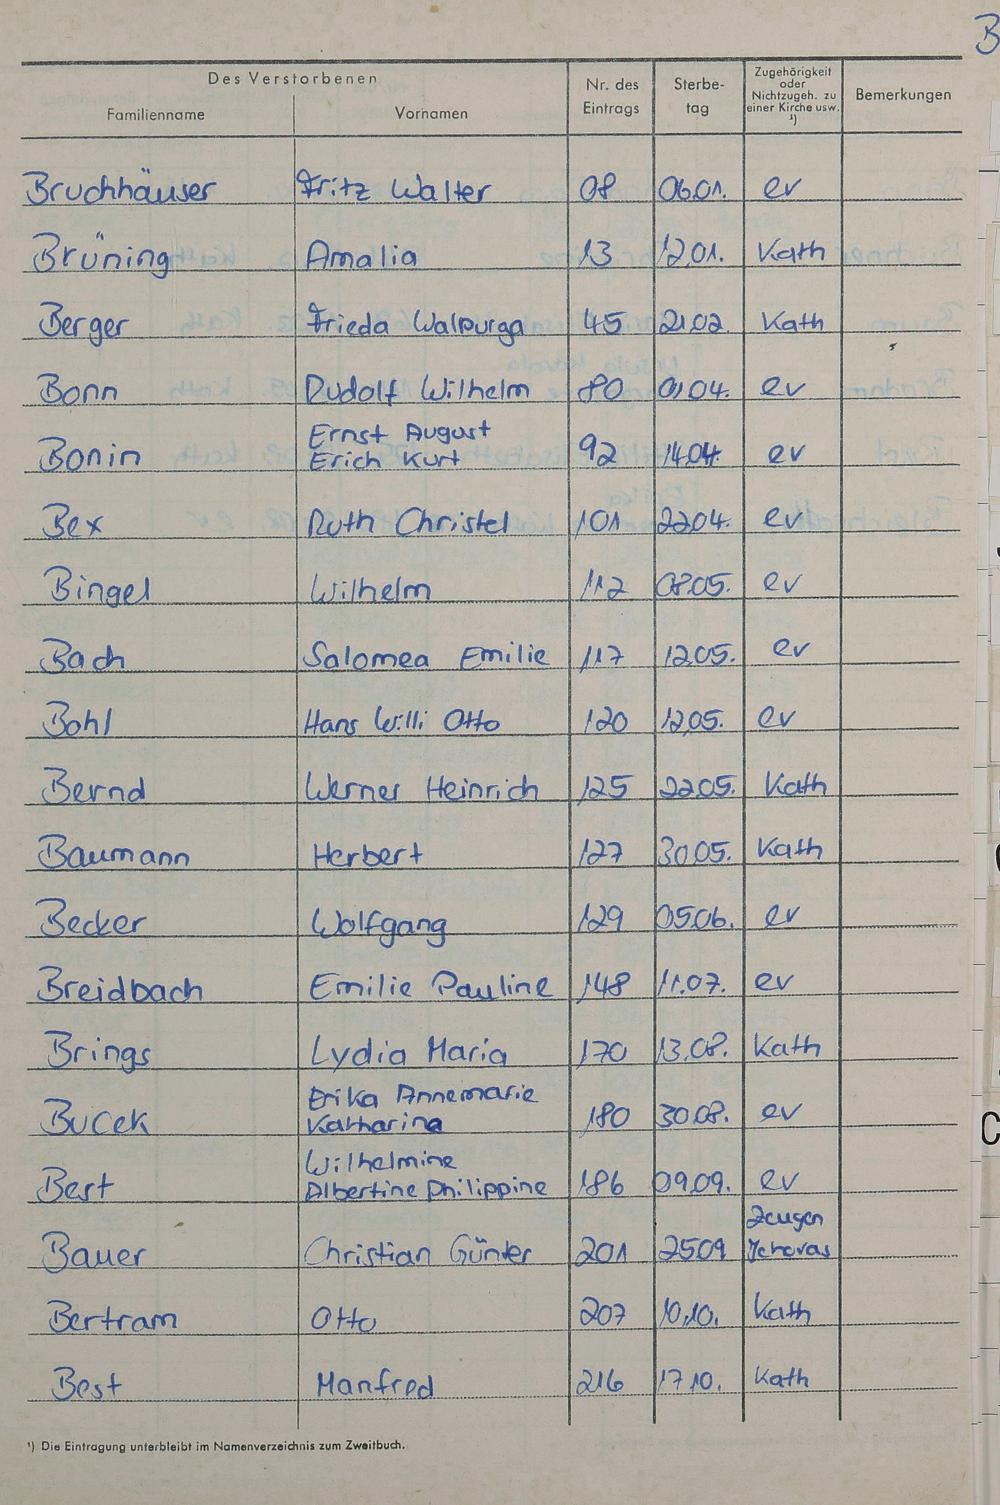 B
Des Verstorbenen
Familienname Vornamen Nr. des Eintrags Sterbe-tag Zugehörigkeit oder Nichtzugeh. zu einer Kirche usw. ¹) Bemerkungen
Bruchhäuser Fritz Walter 08 06.01. ev
Brüning Amalia 13 12.01. Kath
Berger Frieda Walpurga 45 21.02. Kath
Bonn Rudolf Wilhelm 80 01.04. ev
Bonin Ernst August Erich Kurt 92 14.04. ev
Bex Ruth Christel 101 22.04. ev
Bingel Wilhelm 112 08.05. ev
Bach Salomea Emilie 117 12.05. ev
Bohl Hans Willi Otto 120 12.05. ev
Bernd Werner Heinrich 125 22.05. Kath
Baumann Herbert 127 30.05. Kath
Becker Wolfgang 129 05.06. ev
Breidbach Emilie Pauline 148 11.07. ev
Brings Lydia Maria 170 13.08. Kath
Bucek Erika Annemarie Katharina 180 30.08. ev
Best Wilhelmine Albertine Philippine 186 09.09. ev
Bauer Christian Günter 201 25.09 Zeugen Jehovas
Bertram Otto 207 10.10. Kath
Best Manfred 216 17.10. Kath
¹) Die Eintragung unterbleibt im Namenverzeichnis zum Zweitbuch.
C